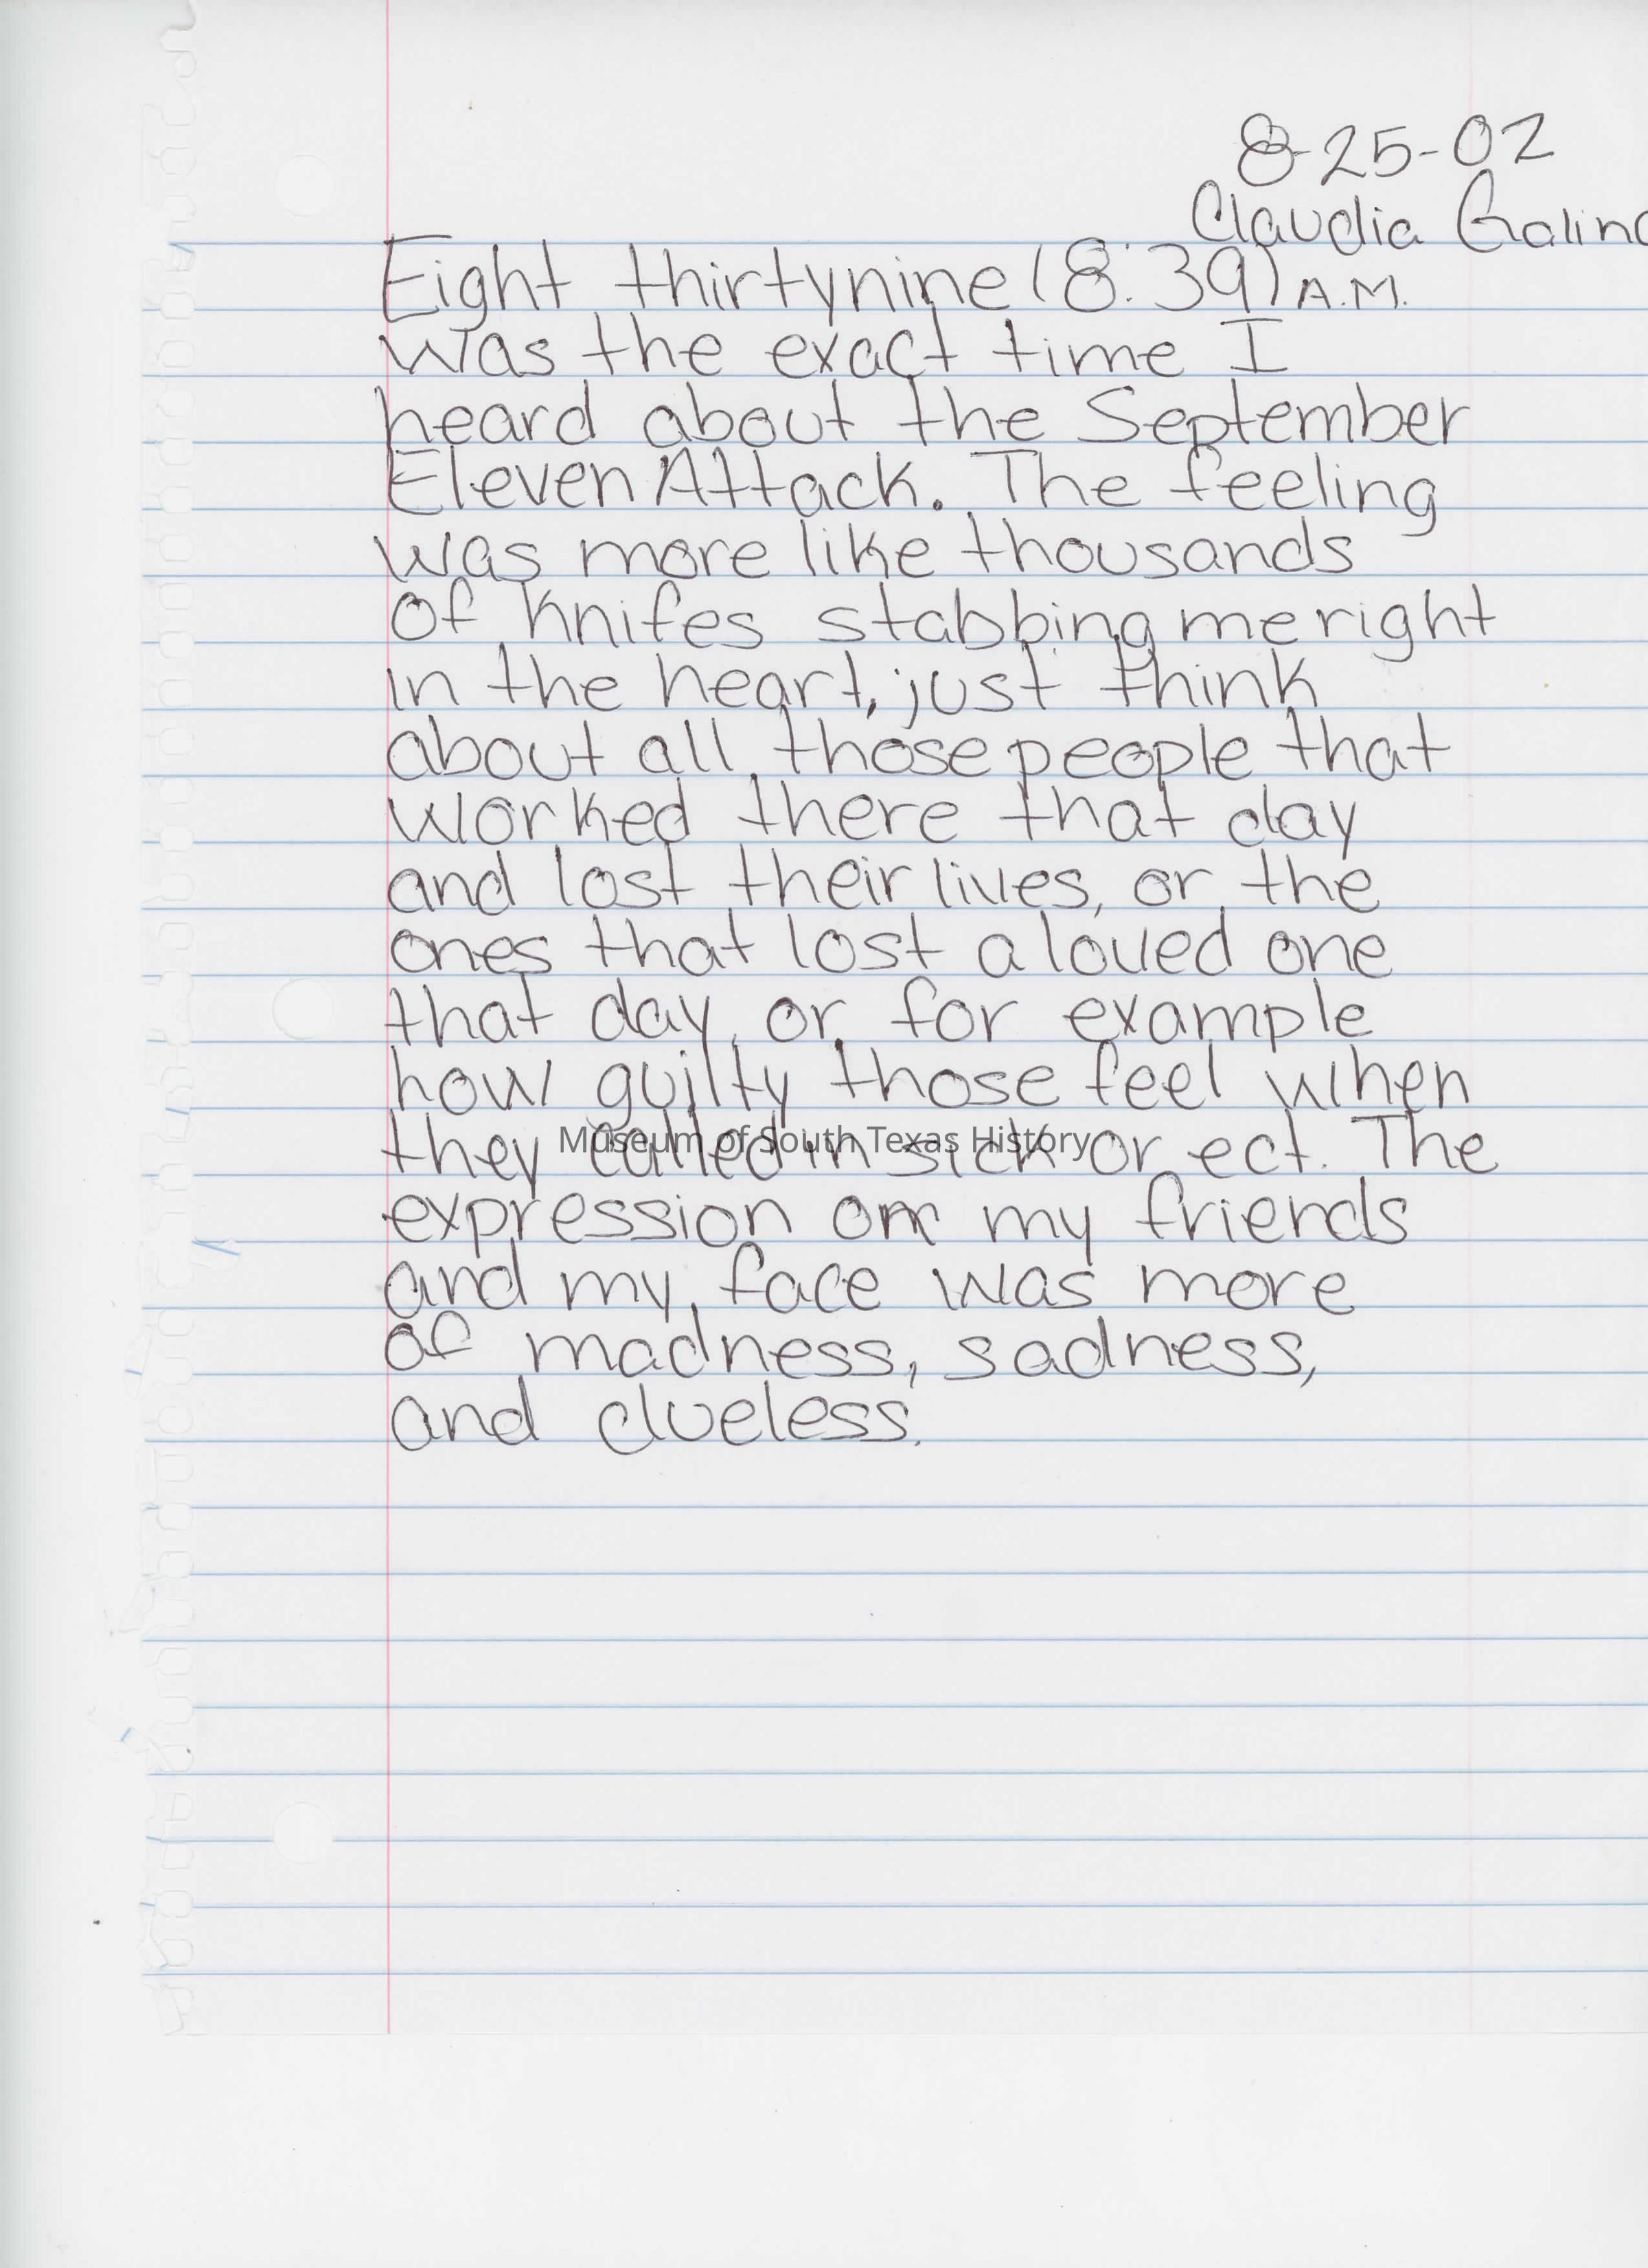 8-25-02
Claudia Galind
Eight thirtynine (8:39) A.M.
was the exact time I
heard about the September
Eleven Attack. The feeling
was more like thousands
of knifes stabbing me right
in the heart, just think
about all those people that
worked there that day
and lost their lives, or the
ones that lost a loved one
that day, or for example
how guilty those feel when
they called in sick or ect. The
Museum of South Texas History
expression on my friends
and my face was more
of madness, sadness,
and clueless.